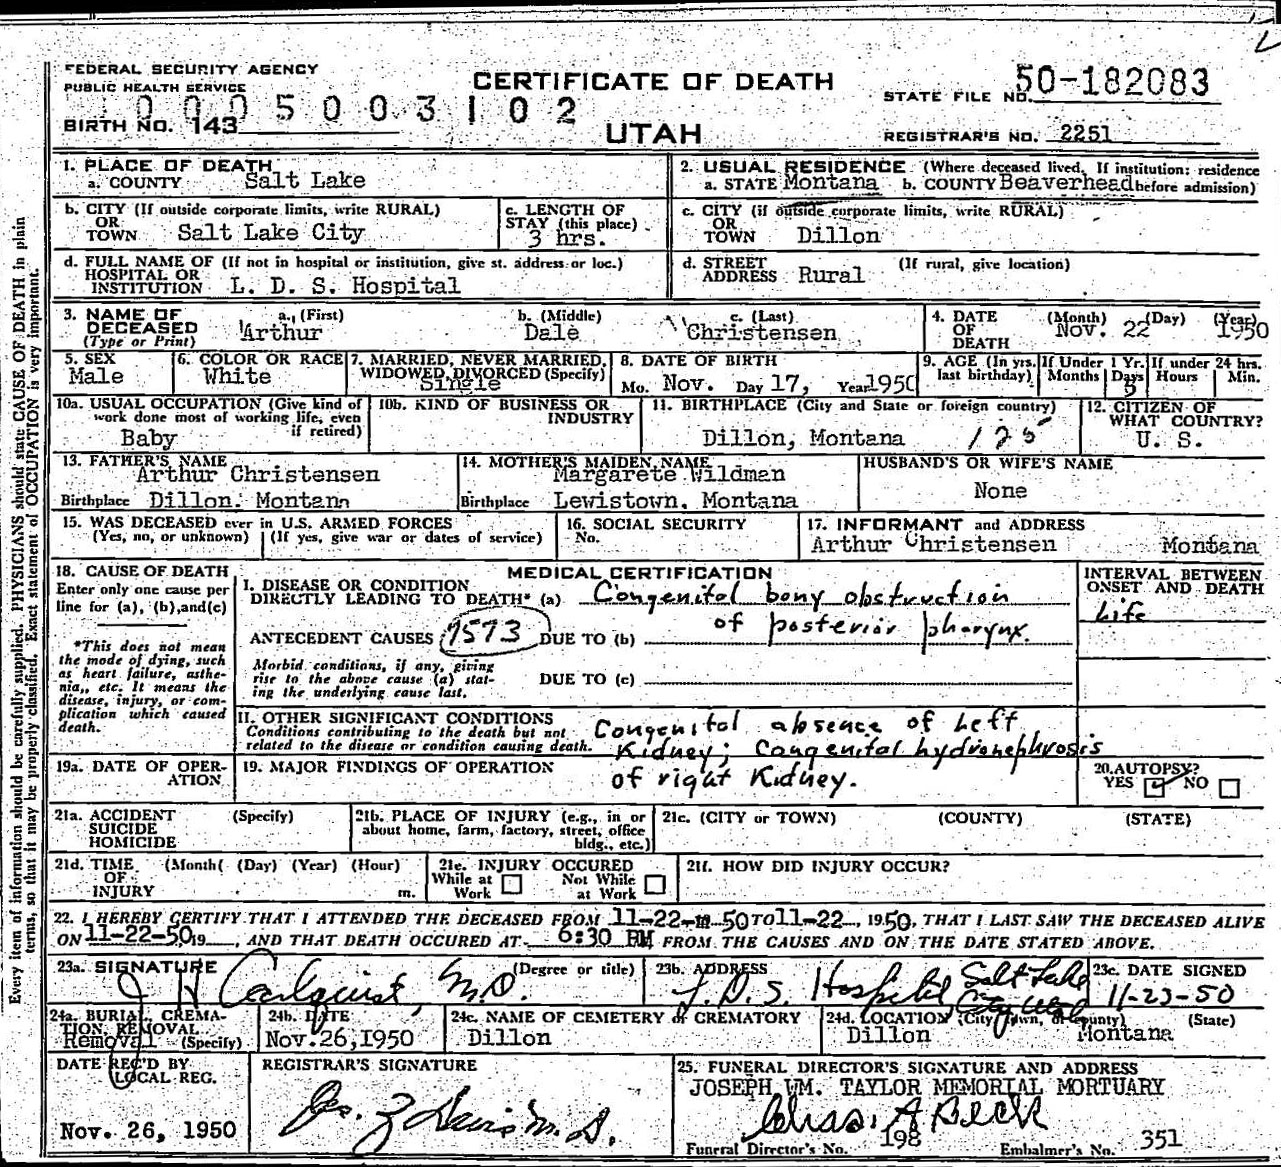 FEDERAL SECURITY AGENCY
PUBLIC HEALTH SERVICE
0005003102
BIRTH NO. 143
CERTIFICATE OF DEATH
UTAH
STATE FILE NO. 50-182083
REGISTRAR'S NO. 2251
Every item of information should be carefully supplied. PHYSICIANS should state CAUSE OF DEATH in plain
terms, so that it may be properly classified. Exact statement of OCCUPATION is very important.
1. PLACE OF DEATH
a. COUNTY Salt Lake
2. USUAL RESIDENCE (Where deceased lived. If institution: residence
a. STATE Montana b. COUNTY Beaverhead before admission)
b. CITY (If outside corporate limits, write RURAL)
OR
TOWN Salt Lake City
c. LENGTH OF
STAY (this place)
3 hrs.
c. CITY (if outside corporate limits, write RURAL)
OR
TOWN Dillon
d. FULL NAME OF (If not in hospital or institution, give st. address or loc.)
HOSPITAL OR
INSTITUTION L. D. S. Hospital
d. STREET (If rural, give location)
ADDRESS Rural
3. NAME OF a. (First) b. (Middle) c. (Last)
DECEASED Arthur Dale Christensen
(Type or Print)
4. DATE (Month) (Day) (Year)
OF Nov. 22 1950
DEATH
5. SEX
Male
6. COLOR OR RACE
White
7. MARRIED, NEVER MARRIED,
WIDOWED, DIVORCED (Specify)
Single
8. DATE OF BIRTH
Mo. Nov. Day 17, Year 1950
9. AGE (In yrs. If Under 1 Yr. If under 24 hrs.
last birthday) Months Days Hours Min.
5
10a. USUAL OCCUPATION (Give kind of
work done most of working life, even
if retired)
Baby
10b. KIND OF BUSINESS OR
INDUSTRY
11. BIRTHPLACE (City and State or foreign country)
Dillon, Montana 125
12. CITIZEN OF
WHAT COUNTRY?
U. S.
13. FATHER'S NAME
Arthur Christensen
Birthplace Dillon, Montana
14. MOTHER'S MAIDEN NAME
Margarete Wildman
Birthplace Lewistown, Montana
HUSBAND'S OR WIFE'S NAME
None
15. WAS DECEASED ever in U.S. ARMED FORCES
(Yes, no, or unknown) (If yes, give war or dates of service)
16. SOCIAL SECURITY
No.
17. INFORMANT and ADDRESS
Arthur Christensen Montana
18. CAUSE OF DEATH
Enter only one cause per
line for (a), (b), and (c)
*This does not mean
the mode of dying, such
as heart failure, asthe-
nia,, etc. It means the
disease, injury, or com-
plication which caused
death.
MEDICAL CERTIFICATION
I. DISEASE OR CONDITION
DIRECTLY LEADING TO DEATH* (a) Congenital bony obstruction
of posterior pharynx.
ANTECEDENT CAUSES 7573 DUE TO (b)
Morbid conditions, if any, giving
rise to the above cause (a) stat-
ing the underlying cause last.
DUE TO (c)
INTERVAL BETWEEN
ONSET AND DEATH
Life
II. OTHER SIGNIFICANT CONDITIONS
Conditions contributing to the death but not
related to the disease or condition causing death.
Congenital absence of Left
Kidney; Congenital hydronephrosis
of right Kidney.
19a. DATE OF OPER-
ATION
19. MAJOR FINDINGS OF OPERATION
20. AUTOPSY?
YES NO
21a. ACCIDENT (Specify)
SUICIDE
HOMICIDE
21b. PLACE OF INJURY (e.g., in or
about home, farm, factory, street, office
bldg., etc.)
21c. (CITY or TOWN) (COUNTY) (STATE)
21d. TIME (Month( (Day) (Year) (Hour)
OF
INJURY m.
21e. INJURY OCCURED
While at Not While
Work at Work
21f. HOW DID INJURY OCCUR?
22. I HEREBY CERTIFY THAT I ATTENDED THE DECEASED FROM 11-22-50 TO 11-22, 1950, THAT I LAST SAW THE DECEASED ALIVE
ON 11-22-50 19, AND THAT DEATH OCCURED AT 6:30 PM FROM THE CAUSES AND ON THE DATE STATED ABOVE.
23a. SIGNATURE (Degree or title)
J H Carlquist, M.D.
23b. ADDRESS
L. D. S. Hospital Salt Lake
City Utah
23c. DATE SIGNED
11-23-50
24a. BURIAL, CREMA-
TION, REMOVAL
Removal (Specify)
24b. DATE
Nov. 26, 1950
24c. NAME OF CEMETERY or CREMATORY
Dillon
24d. LOCATION (City, town, or county) (State)
Dillon Montana
DATE REC'D BY
LOCAL REG.
Nov. 26, 1950
REGISTRAR'S SIGNATURE
25. FUNERAL DIRECTOR'S SIGNATURE AND ADDRESS
JOSEPH WM. TAYLOR MEMORIAL MORTUARY
Chas. A Beck
Funeral Director's No. 198 Embalmer's No. 351